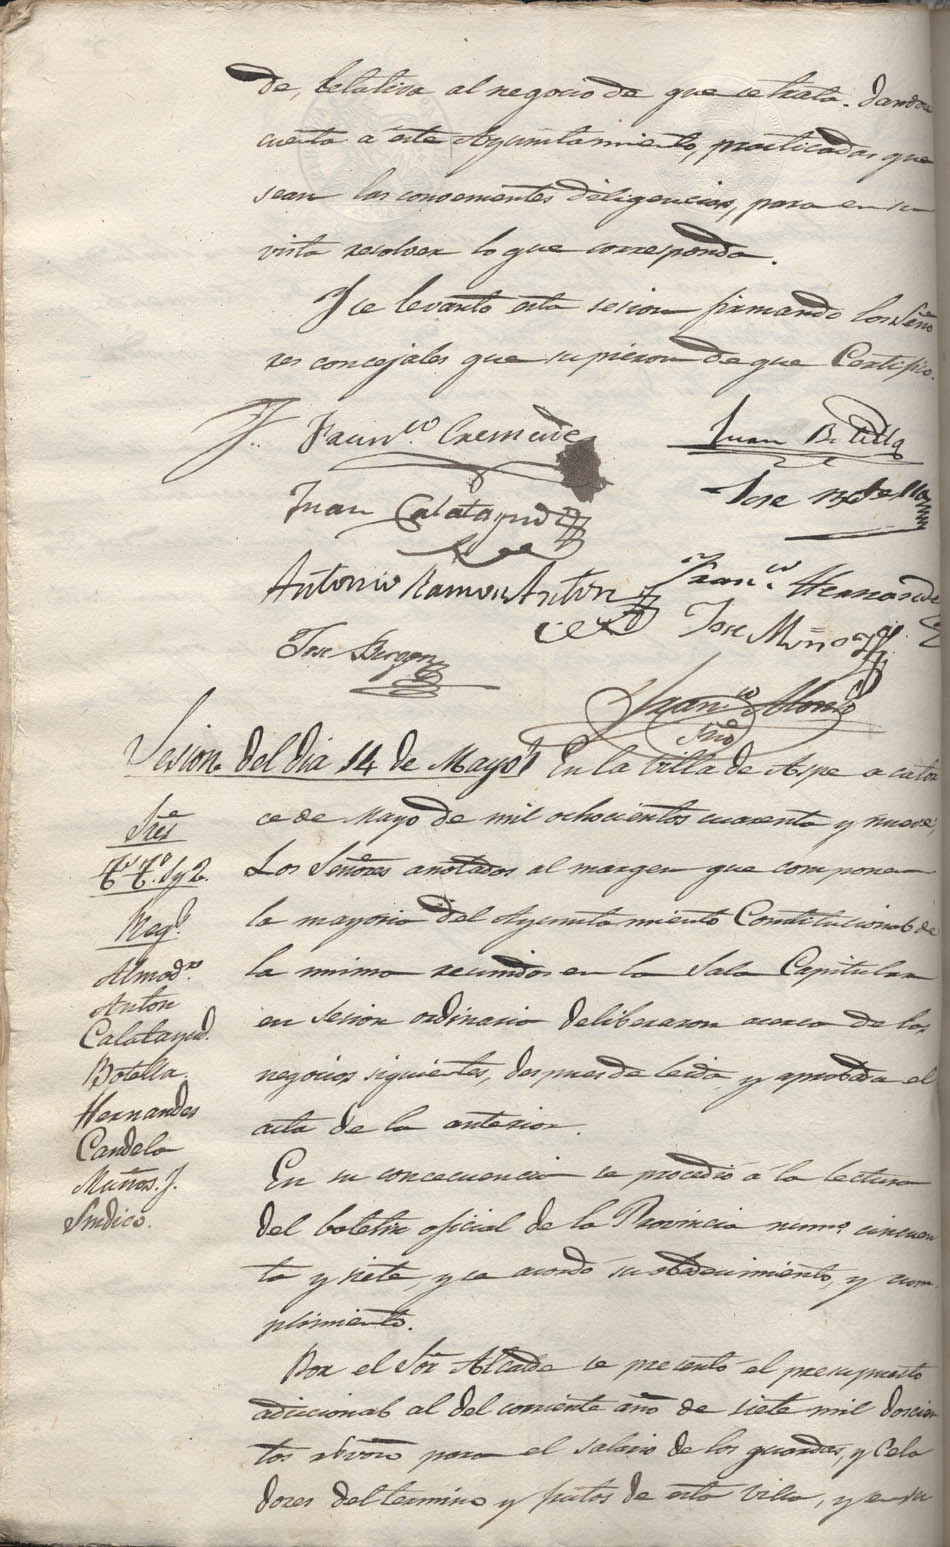 de, relativa al negocio de que se trata. Dandose
cuenta á este Ayuntamiento, practicadas que
sean las convenientes diligencias, para en su
vista resolver lo que corresponda.
Y se levantó esta sesion firmando los Seño
res concejales que supieron de que Certifico.
Juan Botella
Juan Calatayud
Jose Botella
Antonio Ramon Anton
Franco. Hernandez
Jose Muñoz
Franco. Alonso
Srio
Sesion del dia 14 de Mayo
En la Villa de Aspe a cator
ce de Mayo de mil ochocientos cuarenta y nueve,
Los Señores anotados al margen que componen
la mayoria del Ayuntamiento Constitucional de
la misma reunidos en la Sala Capitular
en sesion ordinaria deliberaron acerca de los
negocios siguientes, despues de leida y aprobada el
acta de la anterior.
Sres
Regs.
Almodr.
Anton
Calatayud.
Botella.
Hernandes
Candela
Muños. J.
Sindico.
En su concecuencia se procedió á la lectura
del boletin oficial de la Provincia numo. cincuen
ta y siete, y se acordó su obedecimiento, y cum
plimiento.
Por el Sor. Alcalde se presentó el presupuesto
adicional al del corriente año de siete mil doscien
tos rs. von. para el salario de los guardas, y Cela
dores del termino y frutos de esta Villa, y en su